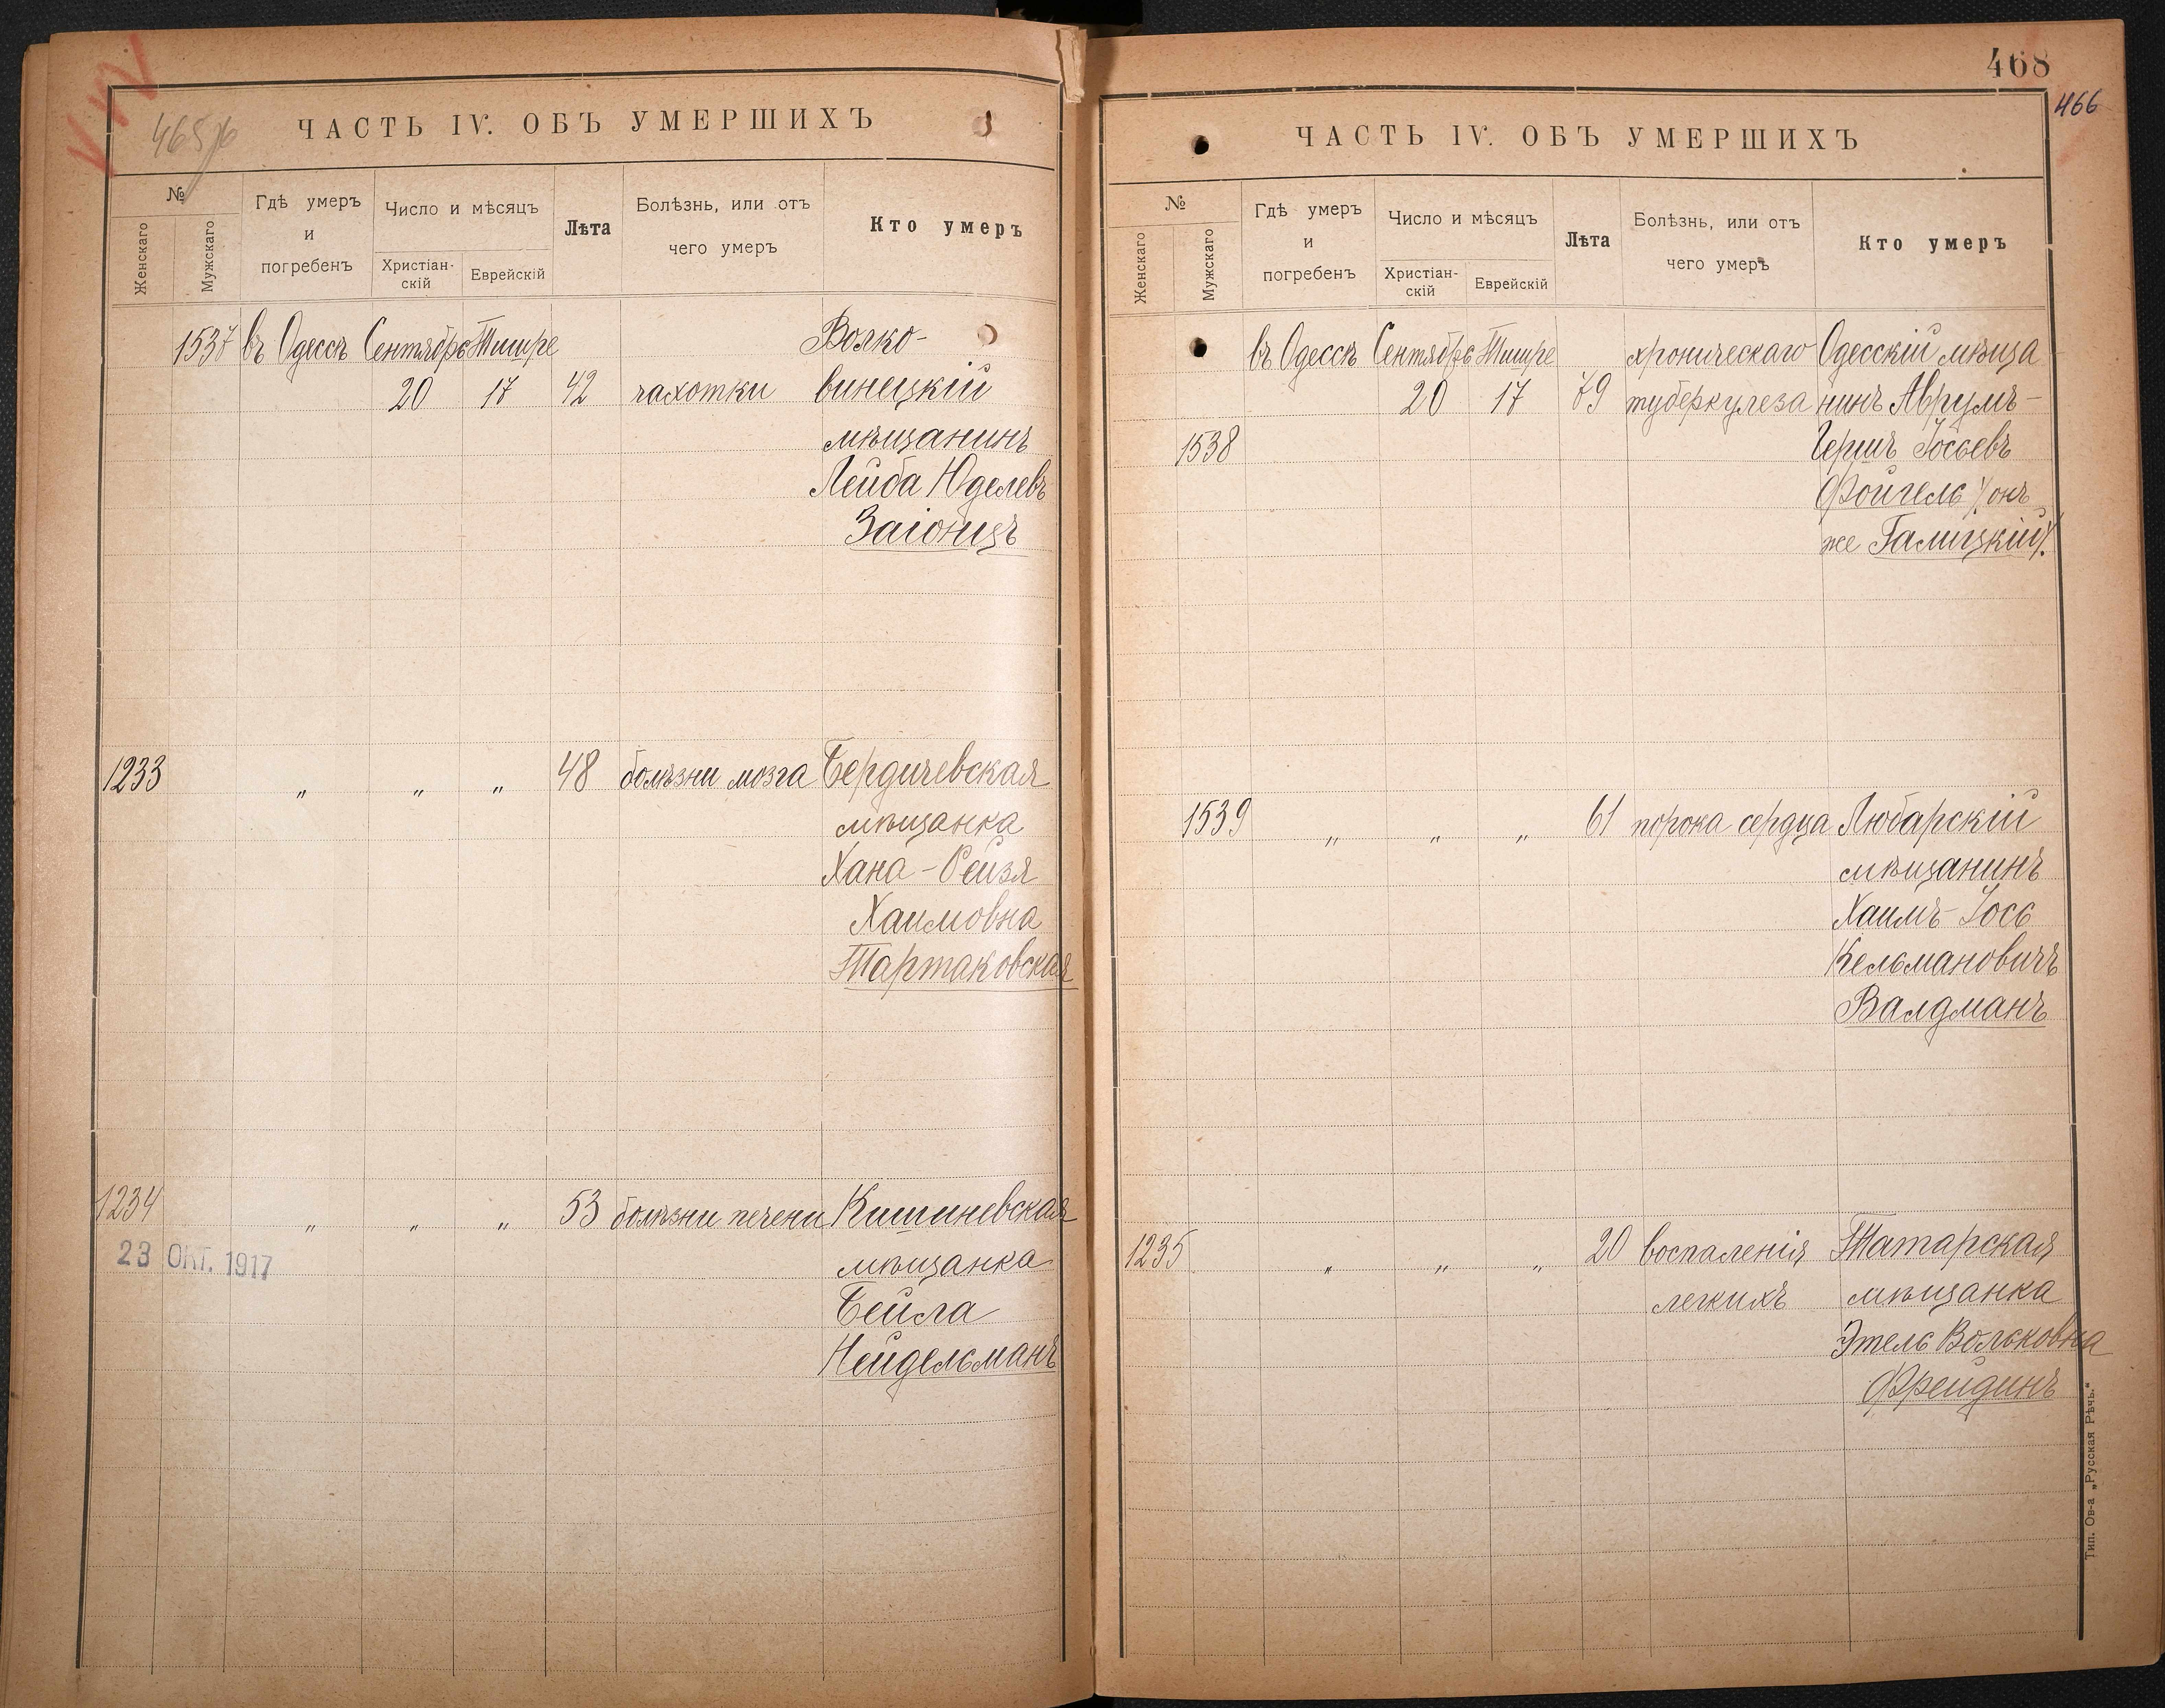 465/б
ЧАСТЬ IV. ОБЪ УМЕРШИХЪ
№
Женскаго
Мужскаго
Гдѣ умеръ
и
погребенъ
Число и мѣсяцъ
Христіан-
скій
Еврейскій
Лѣта
Болѣзнь, или отъ
чего умеръ
Кто умеръ
1537 въ Одессѣ Сентябрь Тишре Волко-
20 17 42 чахотки винецкій
мѣщанинъ
Лейба Юделевъ
Заіонцъ
1233 „ „ „ 48 болѣзни мозга Бердичевская
мѣщанка
Хана-Рейзя
Хаимовна
Тартаковская
1234 „ „ „ 53 болѣзни печени Кишиневская
23 ОКТ. 1917 мѣщанка
Бейла
Нейдельманъ
468
466
ЧАСТЬ IV. ОБЪ УМЕРШИХЪ
№
Женскаго
Мужскаго
Гдѣ умеръ
и
погребенъ
Число и мѣсяцъ
Христіан-
скій
Еврейскій
Лѣта
Болѣзнь, или отъ
чего умеръ
Кто умеръ
въ Одессѣ Сентябрь Тишре хроническаго Одесскій мѣща
20 17 79 туберкулеза нинъ Аврумъ-
1538 Гершъ Іосьевъ
Фойгель /онъ
же Галицкій/.
1539 „ „ „ 61 порока сердца Любарскій
мѣщанинъ
Хаимъ-Іось
Кельмановичъ
Валдманъ
1235 „ „ „ 20 воспаленія Татарская
легкихъ мѣщанка
Этель Вольковна
Фрейдинъ
Тип. Ов-а „Русская Рѣчь.“